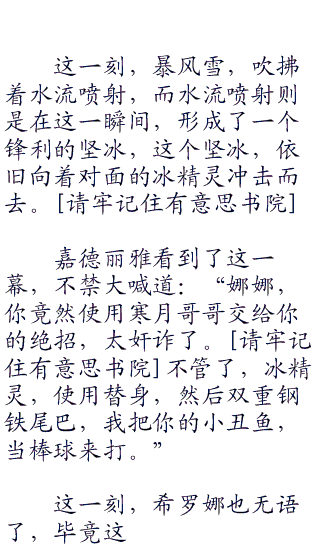 这一刻，暴风雪，吹拂
着水流喷射，而水流喷射则
是在这一瞬间，形成了一个
锋利的坚冰，这个坚冰，依
旧向着对面的冰精灵冲击而
去。[请牢记住有意思书院]
嘉德丽雅看到了这一
幕，不禁大喊道：“娜娜，
你竟然使用寒月哥哥交给你
的绝招，太奸诈了。[请牢记
住有意思书院]不管了，冰精
灵，使用替身，然后双重钢
铁尾巴，我把你的小丑鱼，
当棒球来打。”
这一刻，希罗娜也无语
了，毕竟这